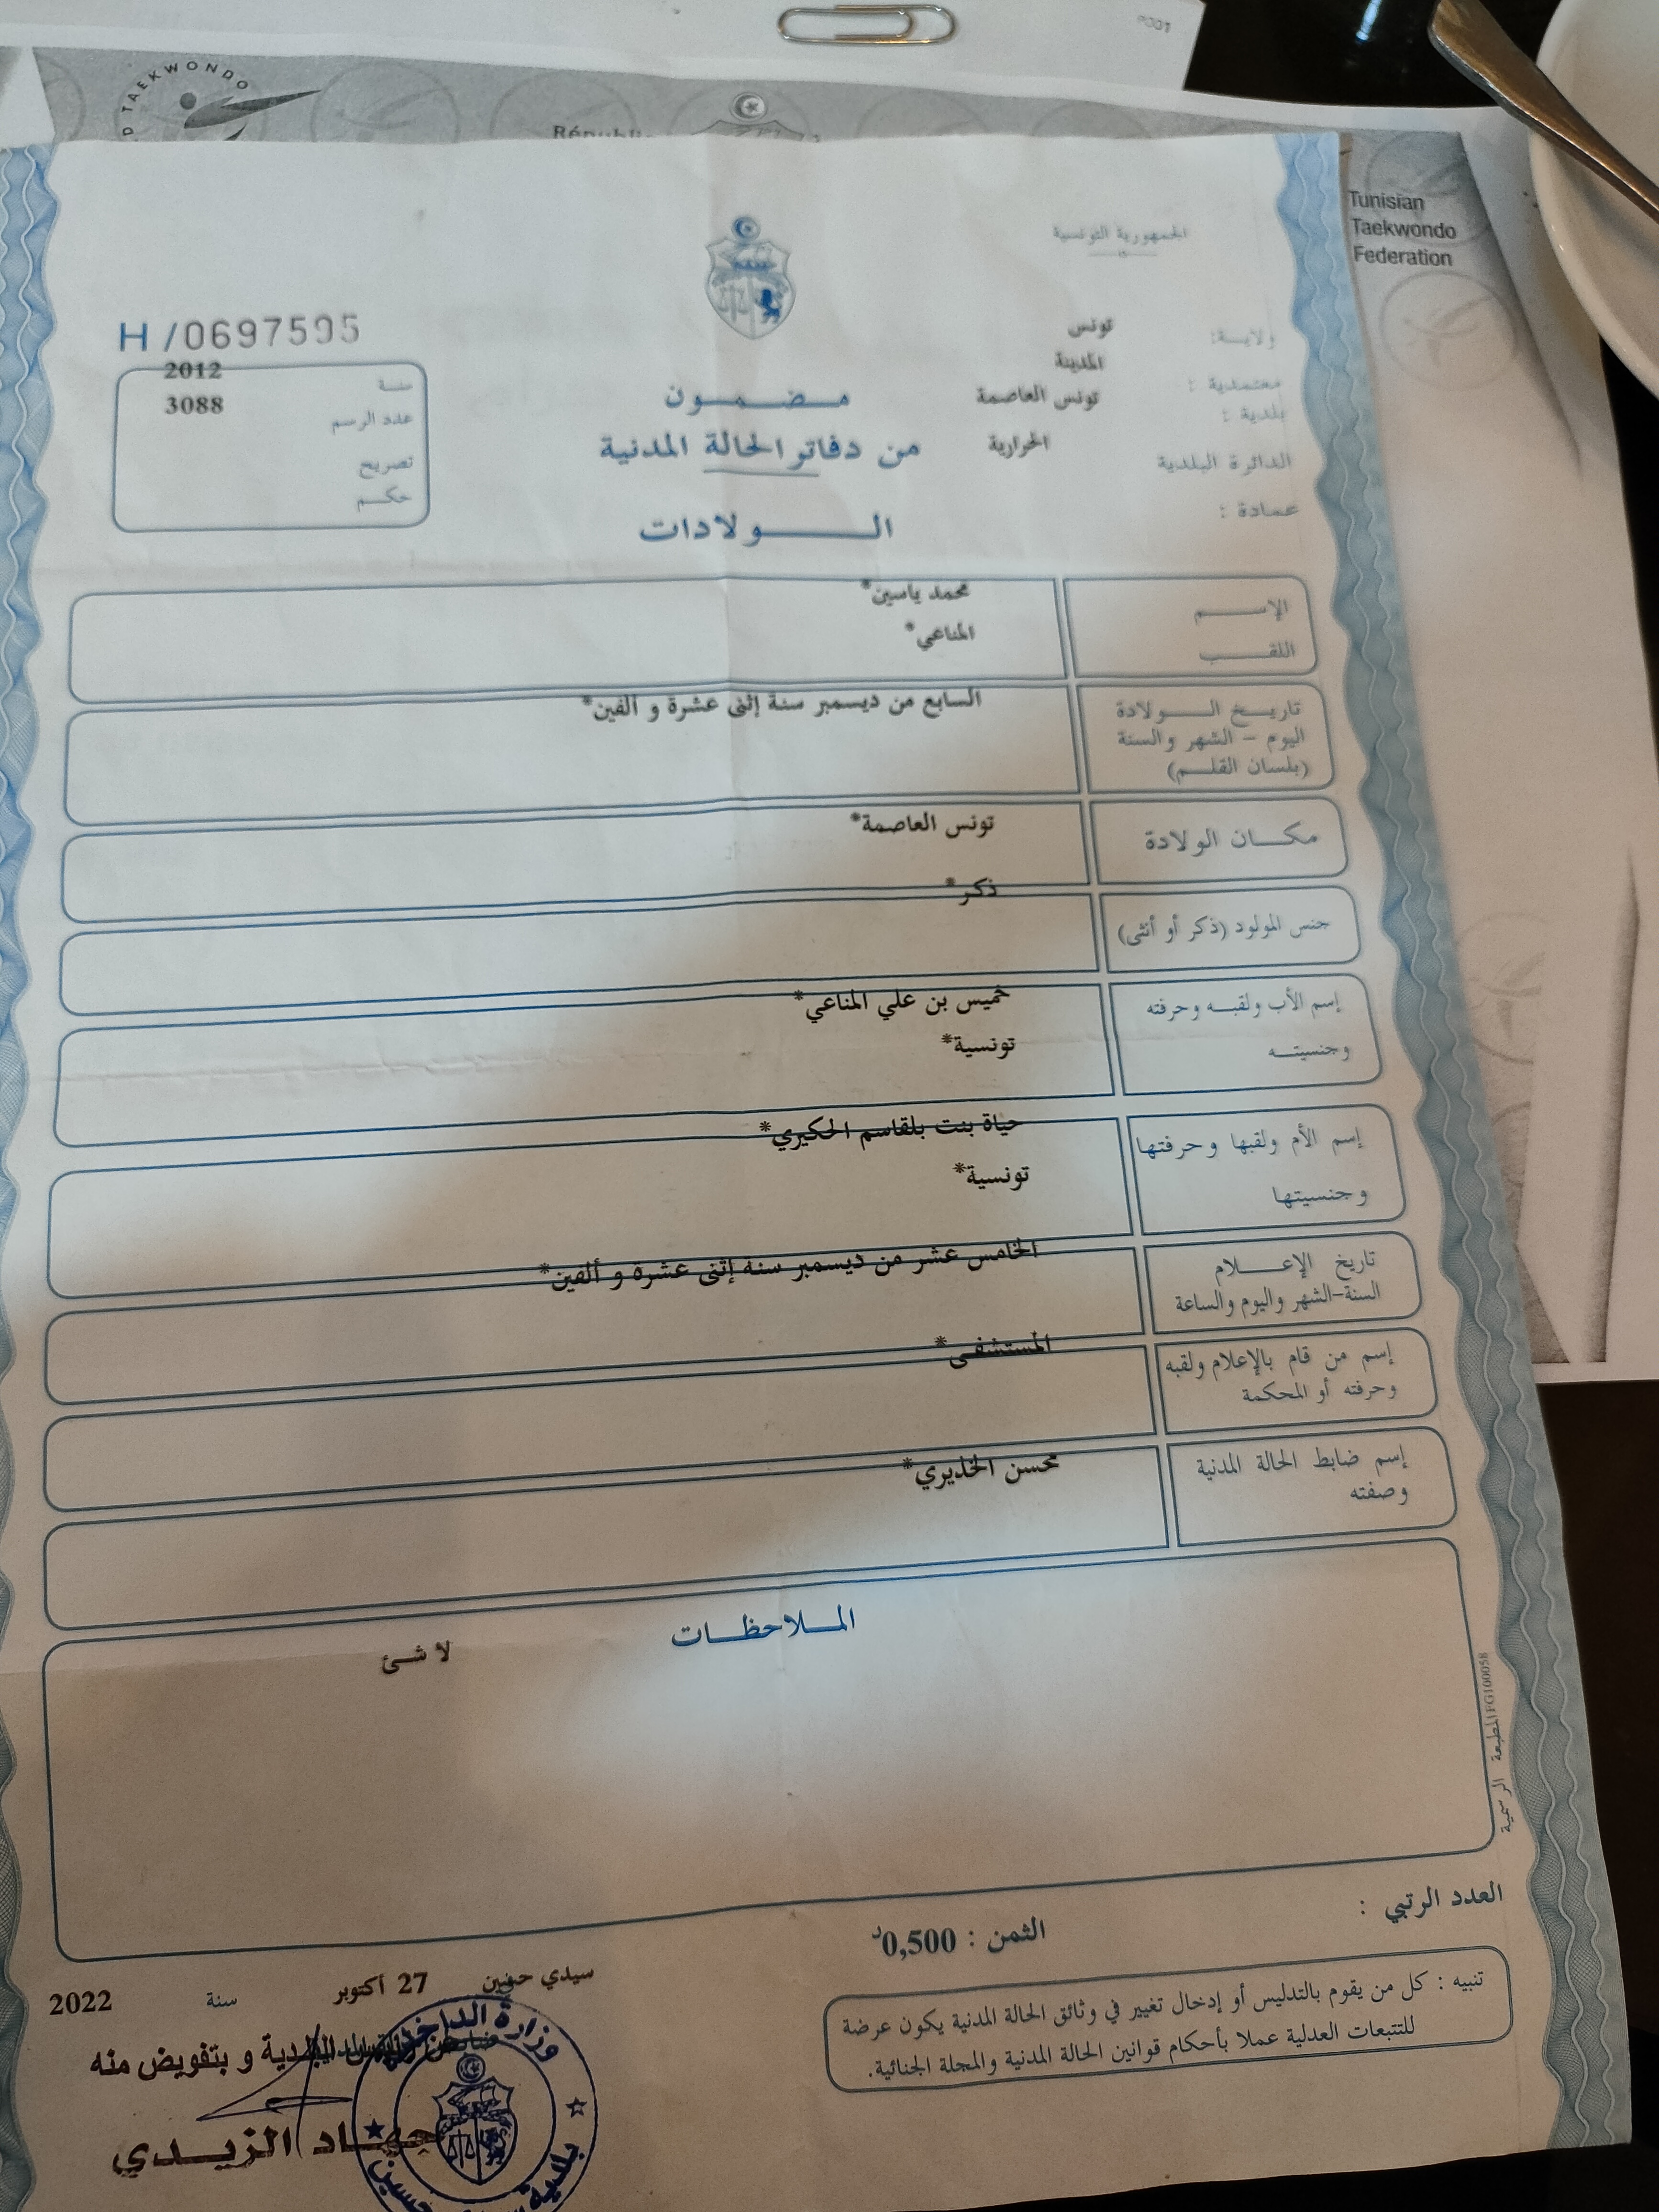 TAEKWONDO
Tunisian
Taekwondo
Federation
الجمهورية التونسية
ولاية: تونس
معتمدية : المدينة
بلدية : تونس العاصمة
الدائرة البلدية الحرارية
عمادة :
H /0697595
سنة 2012
عدد الرسم 3088
تصريح
حكم
مضمون
من دفاتر الحالة المدنية
الولادات
الإسم محمد ياسين*
اللقب المناعي*
تاريخ الولادة السابع من ديسمبر سنة إثنى عشرة و ألفين*
اليوم - الشهر والسنة
(بلسان القلم)
مكان الولادة تونس العاصمة*
جنس المولود (ذكر أو أنثى) ذكر*
إسم الأب ولقبه وحرفته خميس بن علي المناعي*
وجنسيته تونسية*
إسم الأم ولقبها وحرفتها حياة بنت بلقاسم الحكيري*
وجنسيتها تونسية*
تاريخ الإعلام الخامس عشر من ديسمبر سنة إثنى عشرة و ألفين*
السنة-الشهر واليوم والساعة
إسم من قام بالإعلام ولقبه المستشفى*
وحرفته أو المحكمة
إسم ضابط الحالة المدنية محسن الخذيري*
وصفته
الملاحظات
لا شئ
المطبعة الرسمية FG100058
العدد الرتبي :
الثمن : 0,500د
تنبيه : كل من يقوم بالتدليس أو إدخال تغيير في وثائق الحالة المدنية يكون عرضة
للتتبعات العدلية عملا بأحكام قوانين الحالة المدنية والمجلة الجنائية.
سيدي حسين 27 أكتوبر سنة 2022
و بتفويض منه
جهاد الزيدي
وزارة الداخلية
بلدية سيدي حسين